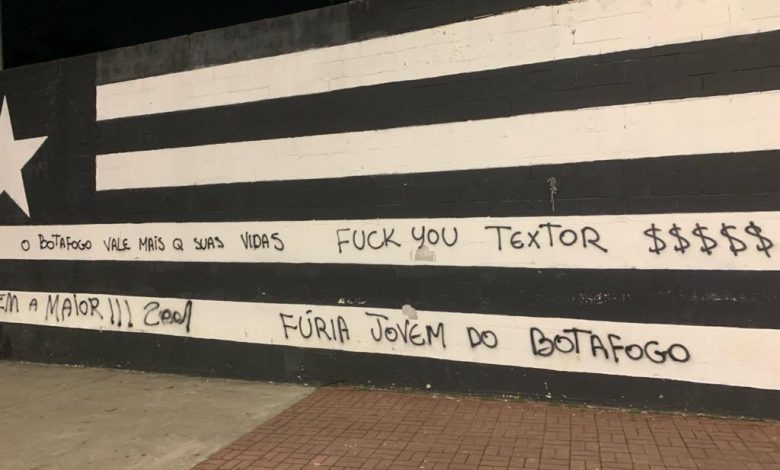 O BOTAFOGO VALE MAIS Q SUAS VIDAS FUCK YOU TEXTOR $$$$$
A MAIOR!!! 2001
FÚRIA JOVEM DO BOTAFOGO